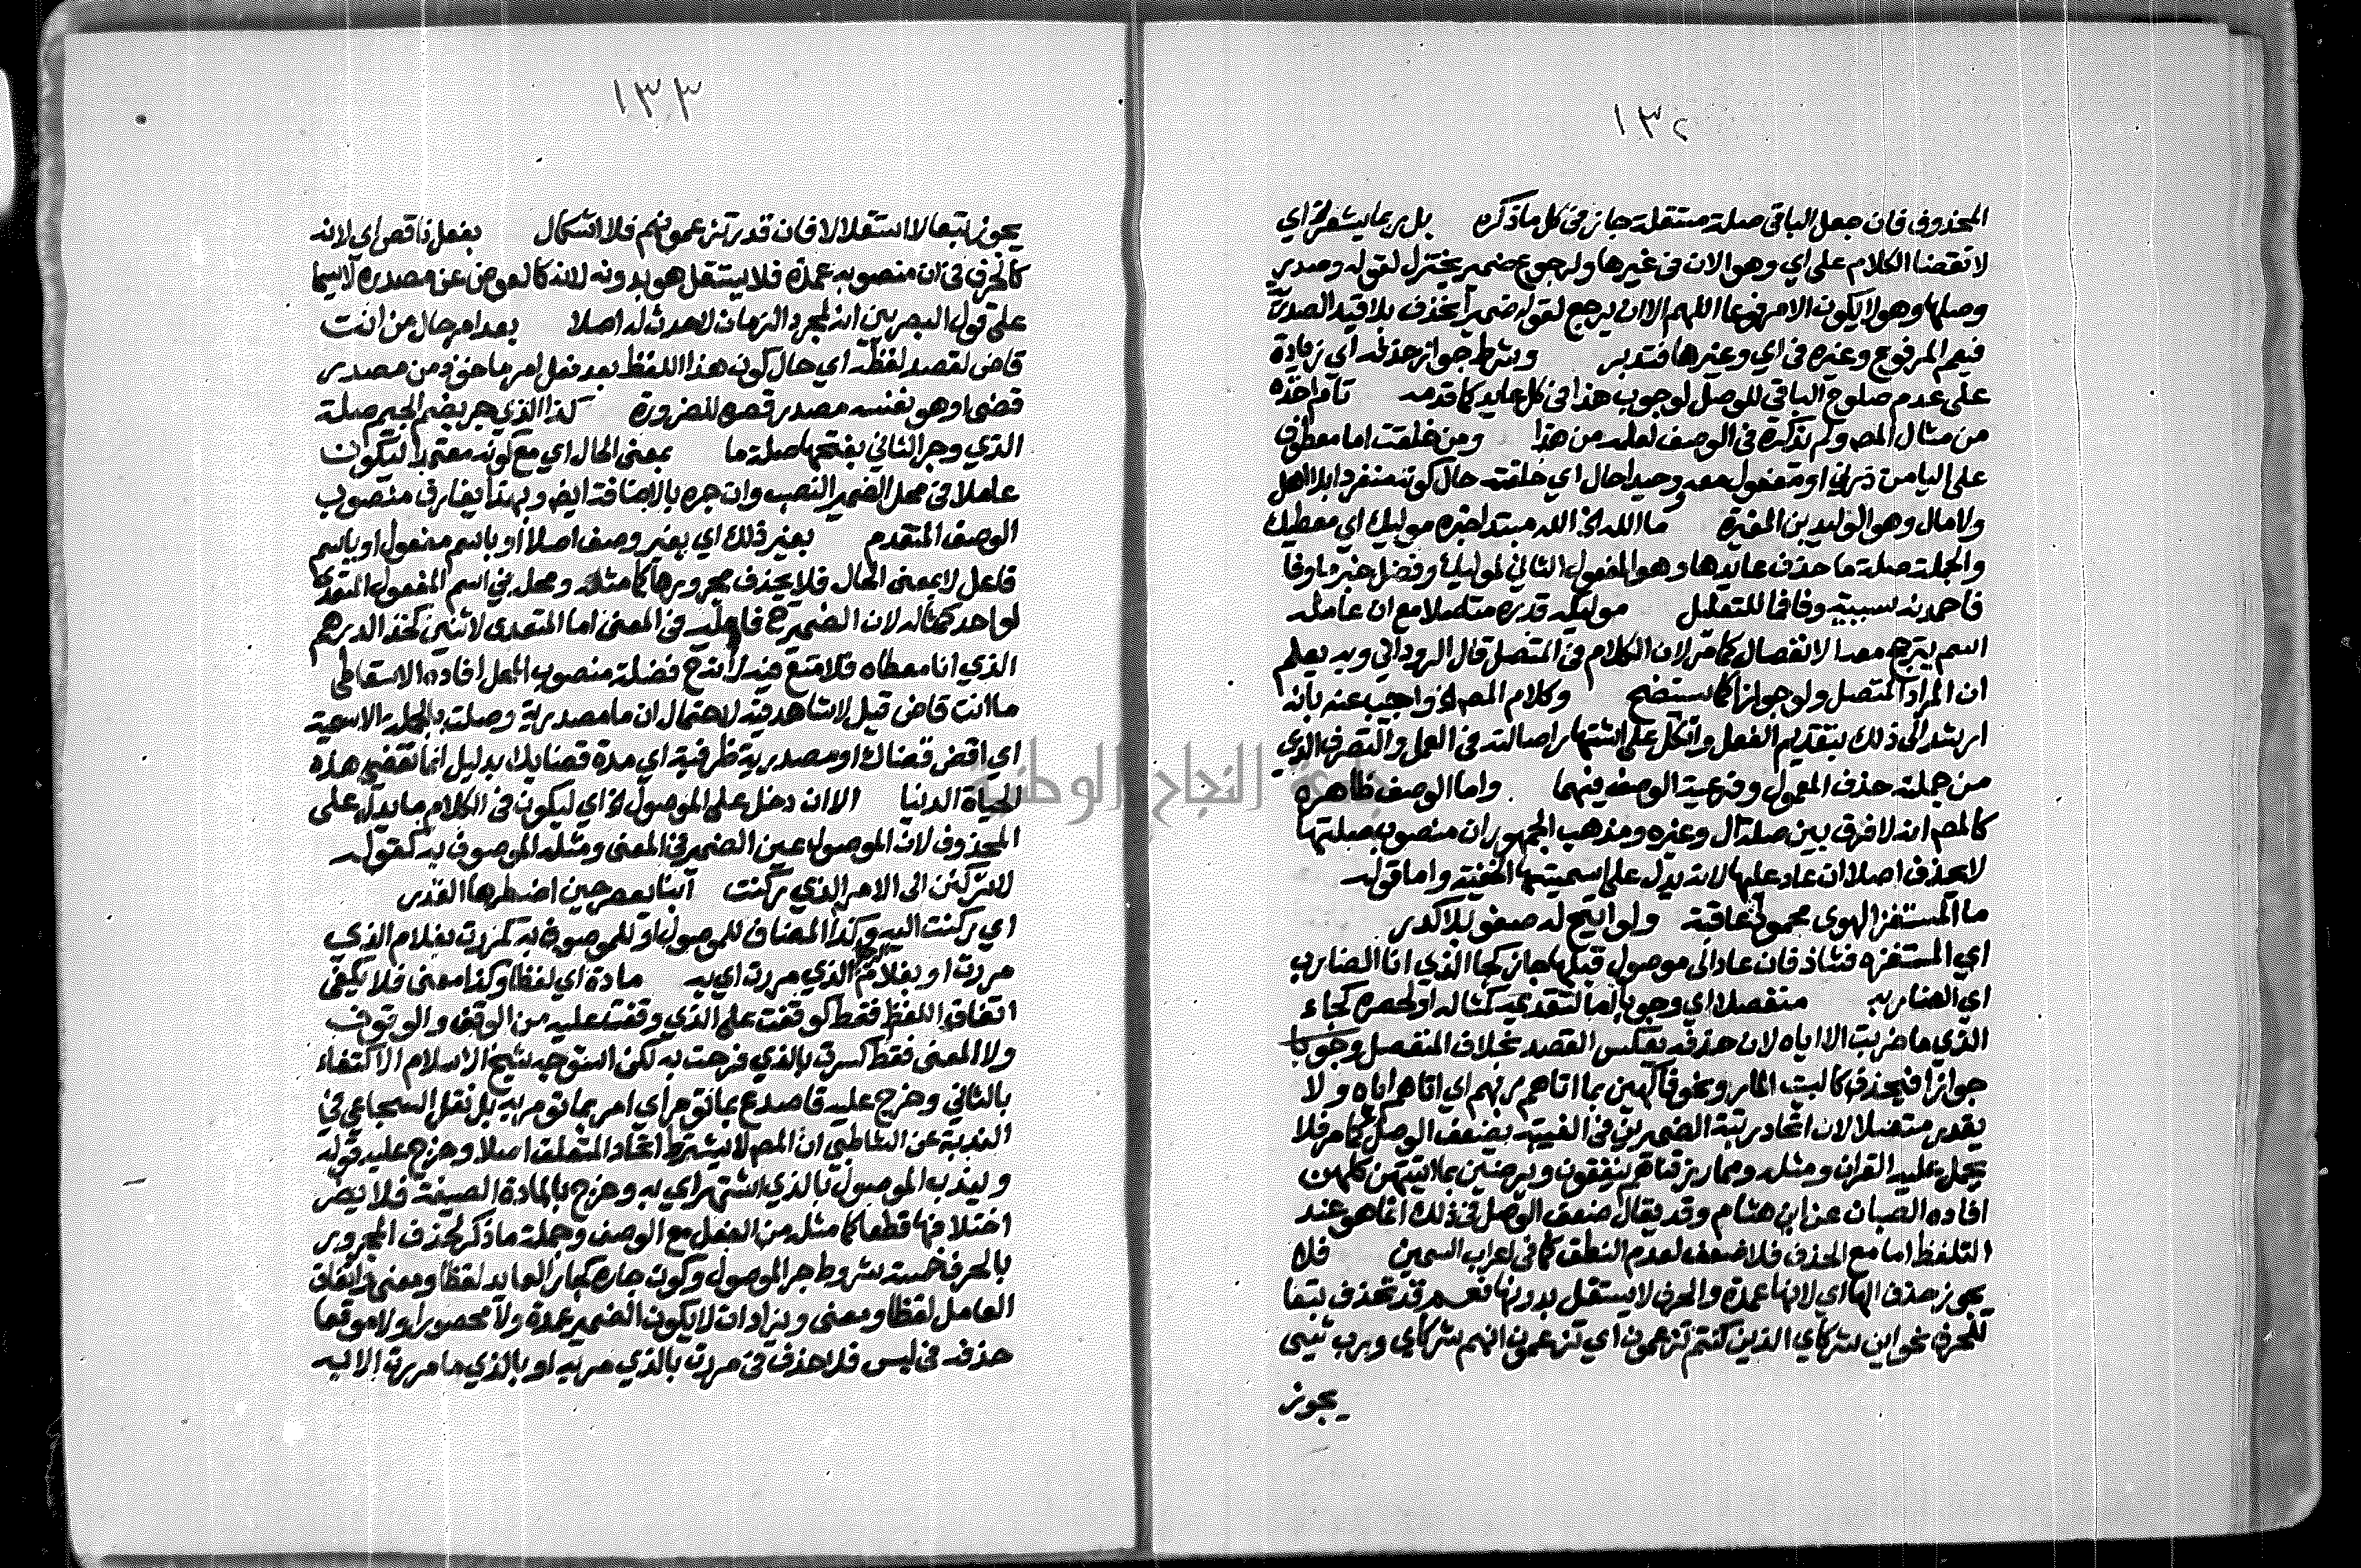 ١٣٢
المحذوف فان جعل الباقي صلة مستقلة جاز في كل ما ذكره بل ربما يشعر اي
لا تقضا الكلام على اي وهو الان في غيرها ولرجوع ضمير يختزل لقوله وصدر
وصلها وهو لا يكون الا مرفوعا اللهم الا ان يرجع لقوله ضمير يحذف بلا قيد الصدرية
فيعم المرفوع وغيره في اي وغيرها فتدبر وشرط جواز حذفه اي زيادة
على عدم صلوح الباقي للوصل لوجوب هذا في كل عايد كما قدمه تام اخذه
من مثال المص ولم يذكره في الوصف لعلمه من هذا ومن خلقت اما معطوف
على اليا من ذرني او مفعول معه وحيدا حال اي خلقته حال كونه منفردا بلا اهل
ولا مال وهو الوليد بن المغيرة ما الله الخ الله مبتدا خبره موليك اي معطيك
والجملة صلة ما حذف عايدها وهو المفعول الثاني لموليك وفضل خبر ما وفا
فاحمدنه سببية وفا فما للتعليل موليكه قدره متصلا مع ان عامله
اسم يترجح معه الانفصال كما مر لان الكلام في المتصل قال الروداني وبه يعلم
ان المراد المتصل ولو جوازا كما سيتضح وكلام المص الخ واجيب عنه بانه
ارشد الى ذلك بتقديم الفعل واتكل على اشتهار اصالته في العمل والتصرف الذي
من جملته حذف المعمول وفرعية الوصف فيهما واما الوصف ظاهره
كالمص انه لا فرق بين صلة ال وغيره ومذهب الجمهور ان منصوب صلتها
لا يحذف اصلا ان عاد عليها لانه يدل على اسميتها الخفية واما قوله
ما المستفز الهوى محمود عاقبة ولو اتيح له صفو بلا كدر
اي المستفزه فشاذ فان عاد الى موصول قبلها جاز كجا الذي انا الضارب
اي الضاربه منفصلا اي وجوبا اما لتقدمه كمثاله او لحصره كجاء
الذي ما ضربت الا اياه لان حذفه يعكس القصد بخلاف المنفصل وجوبا
جوازا فيحذف كما لبت المار ونحو فاكهين بما اتاهم ربهم اي اتاهم اياه ولا
يقدر متصلا لان اتحاد رتبة الضميرين في الغيبة يضعف الوصل كما مر فلا
يحمل عليه القران ومثله ومما رزقناهم ينفقون ويرضين بما اتيتهن كلهن
افاده الصبان عن ابن هشام وقد يقال ضعف الوصل في ذلك انما هو عند
التلفظ اما مع الحذف فلا ضعف لعدم النطق كما في اعراب السمين فلا
يجوز حذف الها اي لانها عمدة والحرف لا يستقل بدونها نعم قد تحذف تبعا
للحرف نحو اين شركاي الذين كنتم تزعمون اي تزعمون انهم شركاي ورب شيى
يجوز
١٣٣
يجوز تبعا لا استقلالا فان قدر تزعمونهم فلا اشكال بفعل ناقص اي لانه
كالحرف في ان منصوبه عمدة فلا يستقل هو بدونه لانه كالعوض عن مصدره لاسيما
على قول البصريين انه لمجرد الزمان لا حدث له اصلا بعد امر حال من انت
قاض لقصد لفظه اي حال كون هذا اللفظ بعد فعل امر ماخوذ من مصدر
قضى او هو نفسه مصدر قصر للضرورة كذا الذي جر بضم الجيم صلة
الذي وجر الثاني بفتحها صلة ما بمعنى الحال اي مع كونه معتمدا ليكون
عاملا في محل الضمير النصب وان جره بالاضافة ايض وبهذا يفارق منصوب
الوصف المتقدم بغير ذلك اي بغير وصف اصلا او باسم مفعول او باسم
فاعل لا بمعنى الحال فلا يحذف مجرورها كما مثله ومحله في اسم المفعول المتعدي
لواحد كمثاله لان الضمير فاعله في المعنى اما المتعدي لاثنين كخذ الدرهم
الذي انا معطاه فلا منع فيه لانه ح فضلة منصوب المحل افاده الاسقاطي
ما انت قاض قيل لا شاهد فيه لاحتمال ان ما مصدرية وصلت بالجملة الاسمية
اي اقض قضاك او مصدرية ظرفية اي مدة قضايك بدليل انما تقضي هذه
الحياة الدنيا الا ان دخل على الموصول الخ اي ليكون في الكلام ما يدل على
المحذوف لان الموصول عين الضمير في المعنى ومثله الموصوف به كقوله
لا تركنن الى الامر الذي ركنت ابنا يعصر حين اضطرها القدر
اي ركنت اليه وكذا المضاف للموصول او للموصوف به كمررت بغلام الذي
مررت او بغلام الذي مررت اي به مادة اي لفظا وكذا معنى فلا يكفي
اتفاق اللفظ فقط كوقفت على الذي وقفت عليه من الوقف والوقوف
ولا المعنى فقط كسرت بالذي فرحت به لكن استوجه شيخ الاسلام الاكتفاء
بالثاني وخرج عليه فاصدع بما تومر اي امر بما تومر به بل نقل السجاعي في
الندبة عن الشاطبي ان المص لا يشترط اتحاد المتعلق اصلا وخرج عليه قوله
ويندب الموصول بالذي اشتهر اي به وخرج بالمادة الصيغة فلا يضر
اختلافها قطعا كما مثله من الفعل مع الوصف وجملة ما ذكر لحذف المجرور
بالحرف خمسة شروط جر الموصول وكون جاره كجار العايد لفظا ومعنى واتفاق
العامل لفظا ومعنى ويزاد ان لا يكون الضمير عمدة ولا محصورا ولا موقعا
حذفه في لبس فلا حذف في مررت بالذي مر به او بالذي ما مررت الا به
جامعة النجاح الوطنية